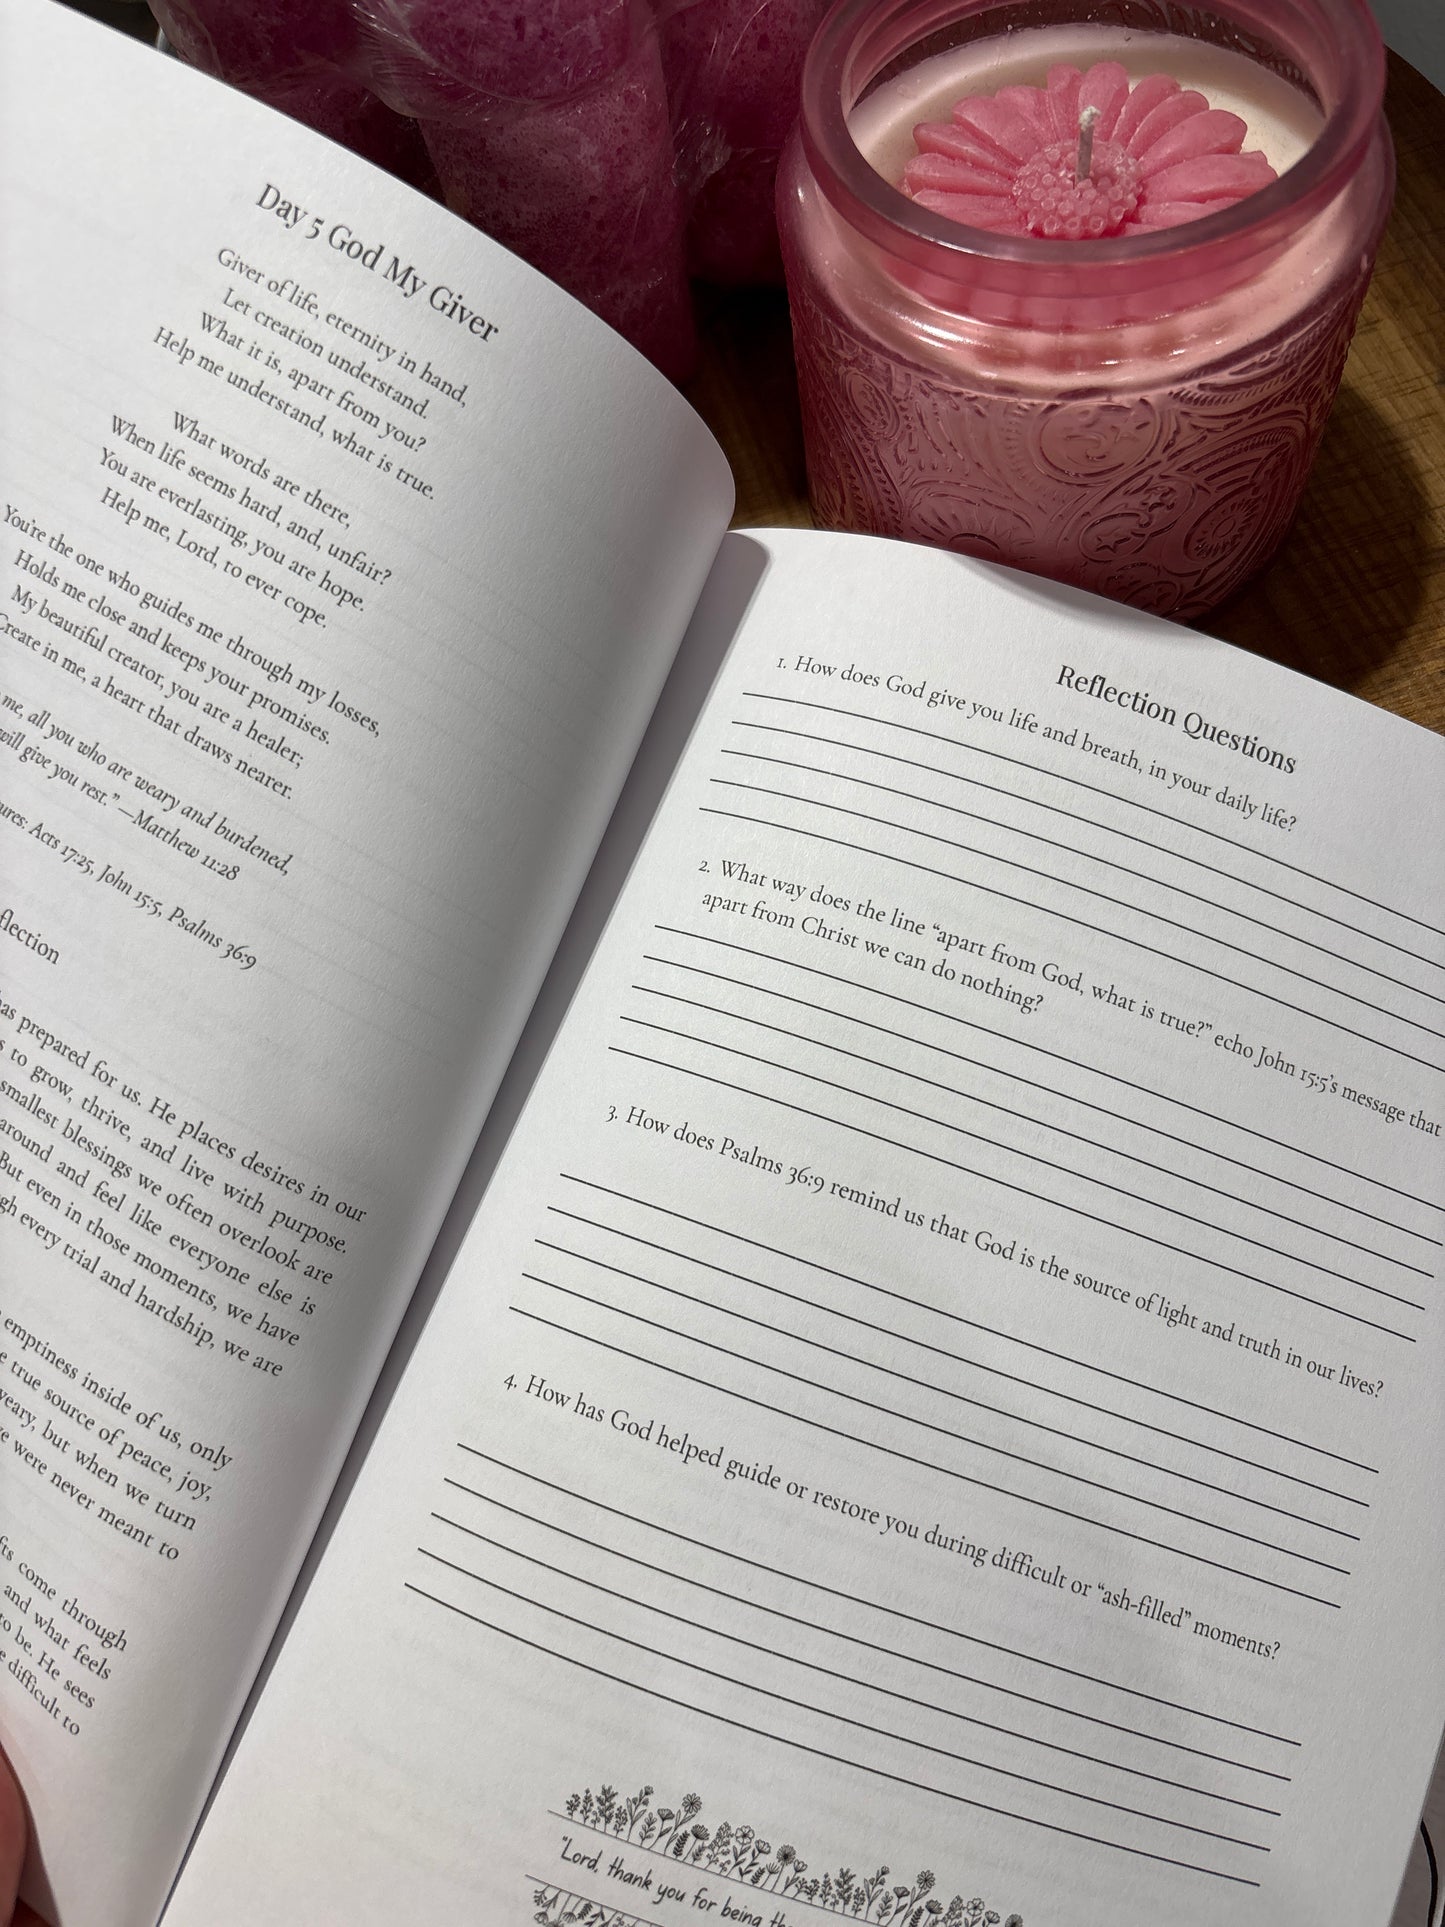 Day 5 God My Giver
Giver of life, eternity in hand,
Let creation understand.
What it is, apart from you?
Help me understand, what is true.
What words are there,
When life seems hard, and, unfair?
You are everlasting, you are hope.
Help me, Lord, to ever cope.
You're the one who guides me through my losses,
Holds me close and keeps your promises.
My beautiful creator, you are a healer;
Create in me, a heart that draws nearer.
me, all you who are weary and burdened,
will give you rest."—Matthew 11:28
Acts 17:25, John 15:5, Psalms 36:9
has prepared for us. He places desires in our
to grow, thrive, and live with purpose.
smallest blessings we often overlook are
around and feel like everyone else is
But even in those moments, we have
every trial and hardship, we are
emptiness inside of us, only
true source of peace, joy,
weary, but when we turn
were never meant to
come through
and what feels
to be. He sees
difficult to
Reflection Questions
1. How does God give you life and breath, in your daily life?
2. What way does the line “apart from God, what is true?” echo John 15:5’s message that
apart from Christ we can do nothing?
3. How does Psalms 36:9 remind us that God is the source of light and truth in our lives?
4. How has God helped guide or restore you during difficult or “ash-filled” moments?
"Lord, thank you for being